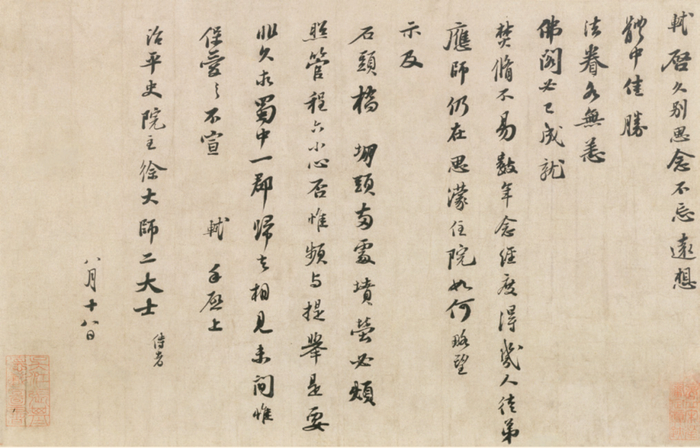 軾啓久别思念不忘遠想
體中佳勝
法眷各無恙
佛閣必已成就
焚脩不易數年念經度得幾人徒弟
應師仍在思濛住院如何略望
示及
石頭橋 堋頭兩處墳塋必煩
照管程六小心否惟頻与提舉是要
非久求蜀中一郡歸去相見未間惟
保愛之不宣 軾手啓上
治平史院主徐大師二大士 侍者
八月十八日